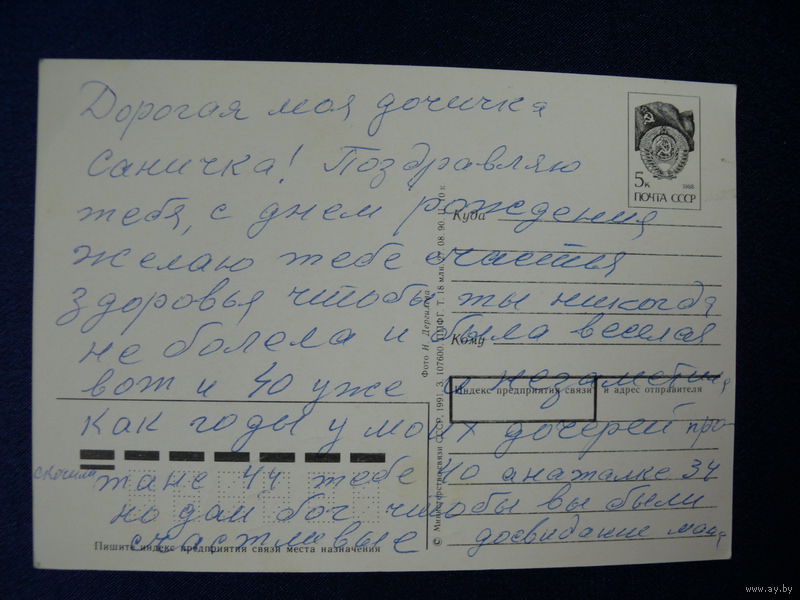 Дорогая моя дочичка
Саничка! Поздравляю
тебя, с днем рождения
желаю тебе счастья
здоровья чтобы ты никогда
не болела и была веселая
вот и 40 уже и незаметил
как годы у моих дочерей про
скочили
тане 44 тебе 40 анаталке 34
но дай бог чтобы вы были
счастливые досвидание мои
5к 1988
ПОЧТА СССР
Куда
Кому
Индекс предприятия связи и адрес отправителя
Пишите индекс предприятия связи места назначения
Фото Н. Дергилева
© Министерство связи СССР, 1991. З. 107600. ППФГ. Т. 18 млн. 08. 90. к.
www.ay.by